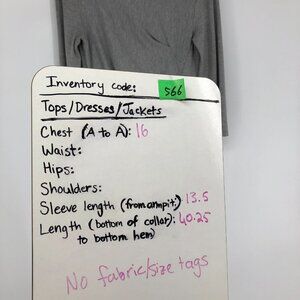 Inventory code: 566
Tops/Dresses/Jackets
Chest (A to A): 16
Waist:
Hips:
Shoulders:
Sleeve length (from armpit): 13.5
Length (bottom of collar): 40.25
to bottom hem)
No fabric/size tags